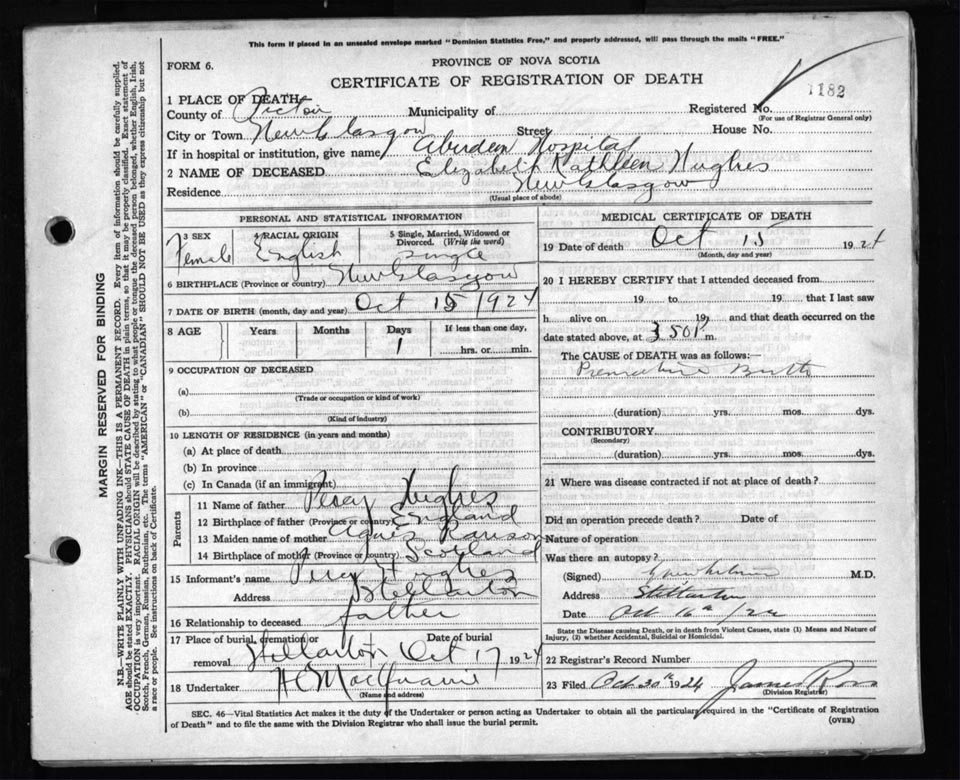 This form if placed in an unsealed envelope marked "Dominion Statistics Free," and properly addressed, will pass through the mails "FREE."
FORM 6.
PROVINCE OF NOVA SCOTIA
CERTIFICATE OF REGISTRATION OF DEATH
1 PLACE OF DEATH
County of Pictou Municipality of Registered No. 1182
(For use of Registrar General only)
City or Town New Glasgow Street House No.
If in hospital or institution, give name Aberdeen Hospital
2 NAME OF DECEASED Elizabeth Kathleen Hughes
Residence New Glasgow
(Usual place of abode)
PERSONAL AND STATISTICAL INFORMATION
3 SEX 4 RACIAL ORIGIN 5 Single, Married, Widowed or Divorced. (Write the word)
Female English Single
6 BIRTHPLACE (Province or country) New Glasgow
7 DATE OF BIRTH (month, day and year) Oct 15 1924
8 AGE Years Months Days If less than one day,
1 hrs. or min.
9 OCCUPATION OF DECEASED
(a)
(Trade or occupation or kind of work)
(b)
(Kind of industry)
10 LENGTH OF RESIDENCE (in years and months)
(a) At place of death
(b) In province
(c) In Canada (if an immigrant)
Parents
11 Name of father Percy Hughes
12 Birthplace of father (Province or country) England
13 Maiden name of mother Agnes Ranson
14 Birthplace of mother (Province or country) Scotland
15 Informant's name Percy Hughes
Address Stellarton
16 Relationship to deceased father
17 Place of burial, cremation or removal Stellarton Date of burial Oct 17 1924
18 Undertaker
(Name and address)
MEDICAL CERTIFICATE OF DEATH
19 Date of death Oct 15 1924
(Month, day and year)
20 I HEREBY CERTIFY that I attended deceased from
19 to 19 that I last saw
h alive on 19 and that death occurred on the
date stated above, at 3.50 P m.
The CAUSE of DEATH was as follows:—
Premature Birth
(duration) yrs. mos. dys.
CONTRIBUTORY
(Secondary)
(duration) yrs. mos. dys.
21 Where was disease contracted if not at place of death?
Did an operation precede death? Date of
Nature of operation
Was there an autopsy?
(Signed) M.D.
Address Stellarton
Date Oct 16th /24
State the Disease causing Death, or in death from Violent Causes, state (1) Means and Nature of
Injury, (2) whether Accidental, Suicidal or Homicidal.
22 Registrar's Record Number
23 Filed Oct 30th 1924 James Ross
(Division Registrar)
SEC. 46—Vital Statistics Act makes it the duty of the Undertaker or person acting as Undertaker to obtain all the particulars required in the "Certificate of Registration
of Death" and to file the same with the Division Registrar who shall issue the burial permit.
(OVER)
MARGIN RESERVED FOR BINDING
N.B.—WRITE PLAINLY WITH UNFADING INK—THIS IS A PERMANENT RECORD. Every item of information should be carefully supplied.
AGE should be stated EXACTLY. PHYSICIANS should STATE CAUSE OF DEATH in plain terms, so that it may be properly classified. Exact statement of
OCCUPATION is very important. RACIAL ORIGIN will be described by stating to what people or tongue the deceased person belonged, whether English, Irish,
Scotch, French, German, Russian, Ruthenian, etc. The terms "AMERICAN" or "CANADIAN" SHOULD NOT BE USED as they express citizenship but not
a race or people. See instructions on back of Certificate.